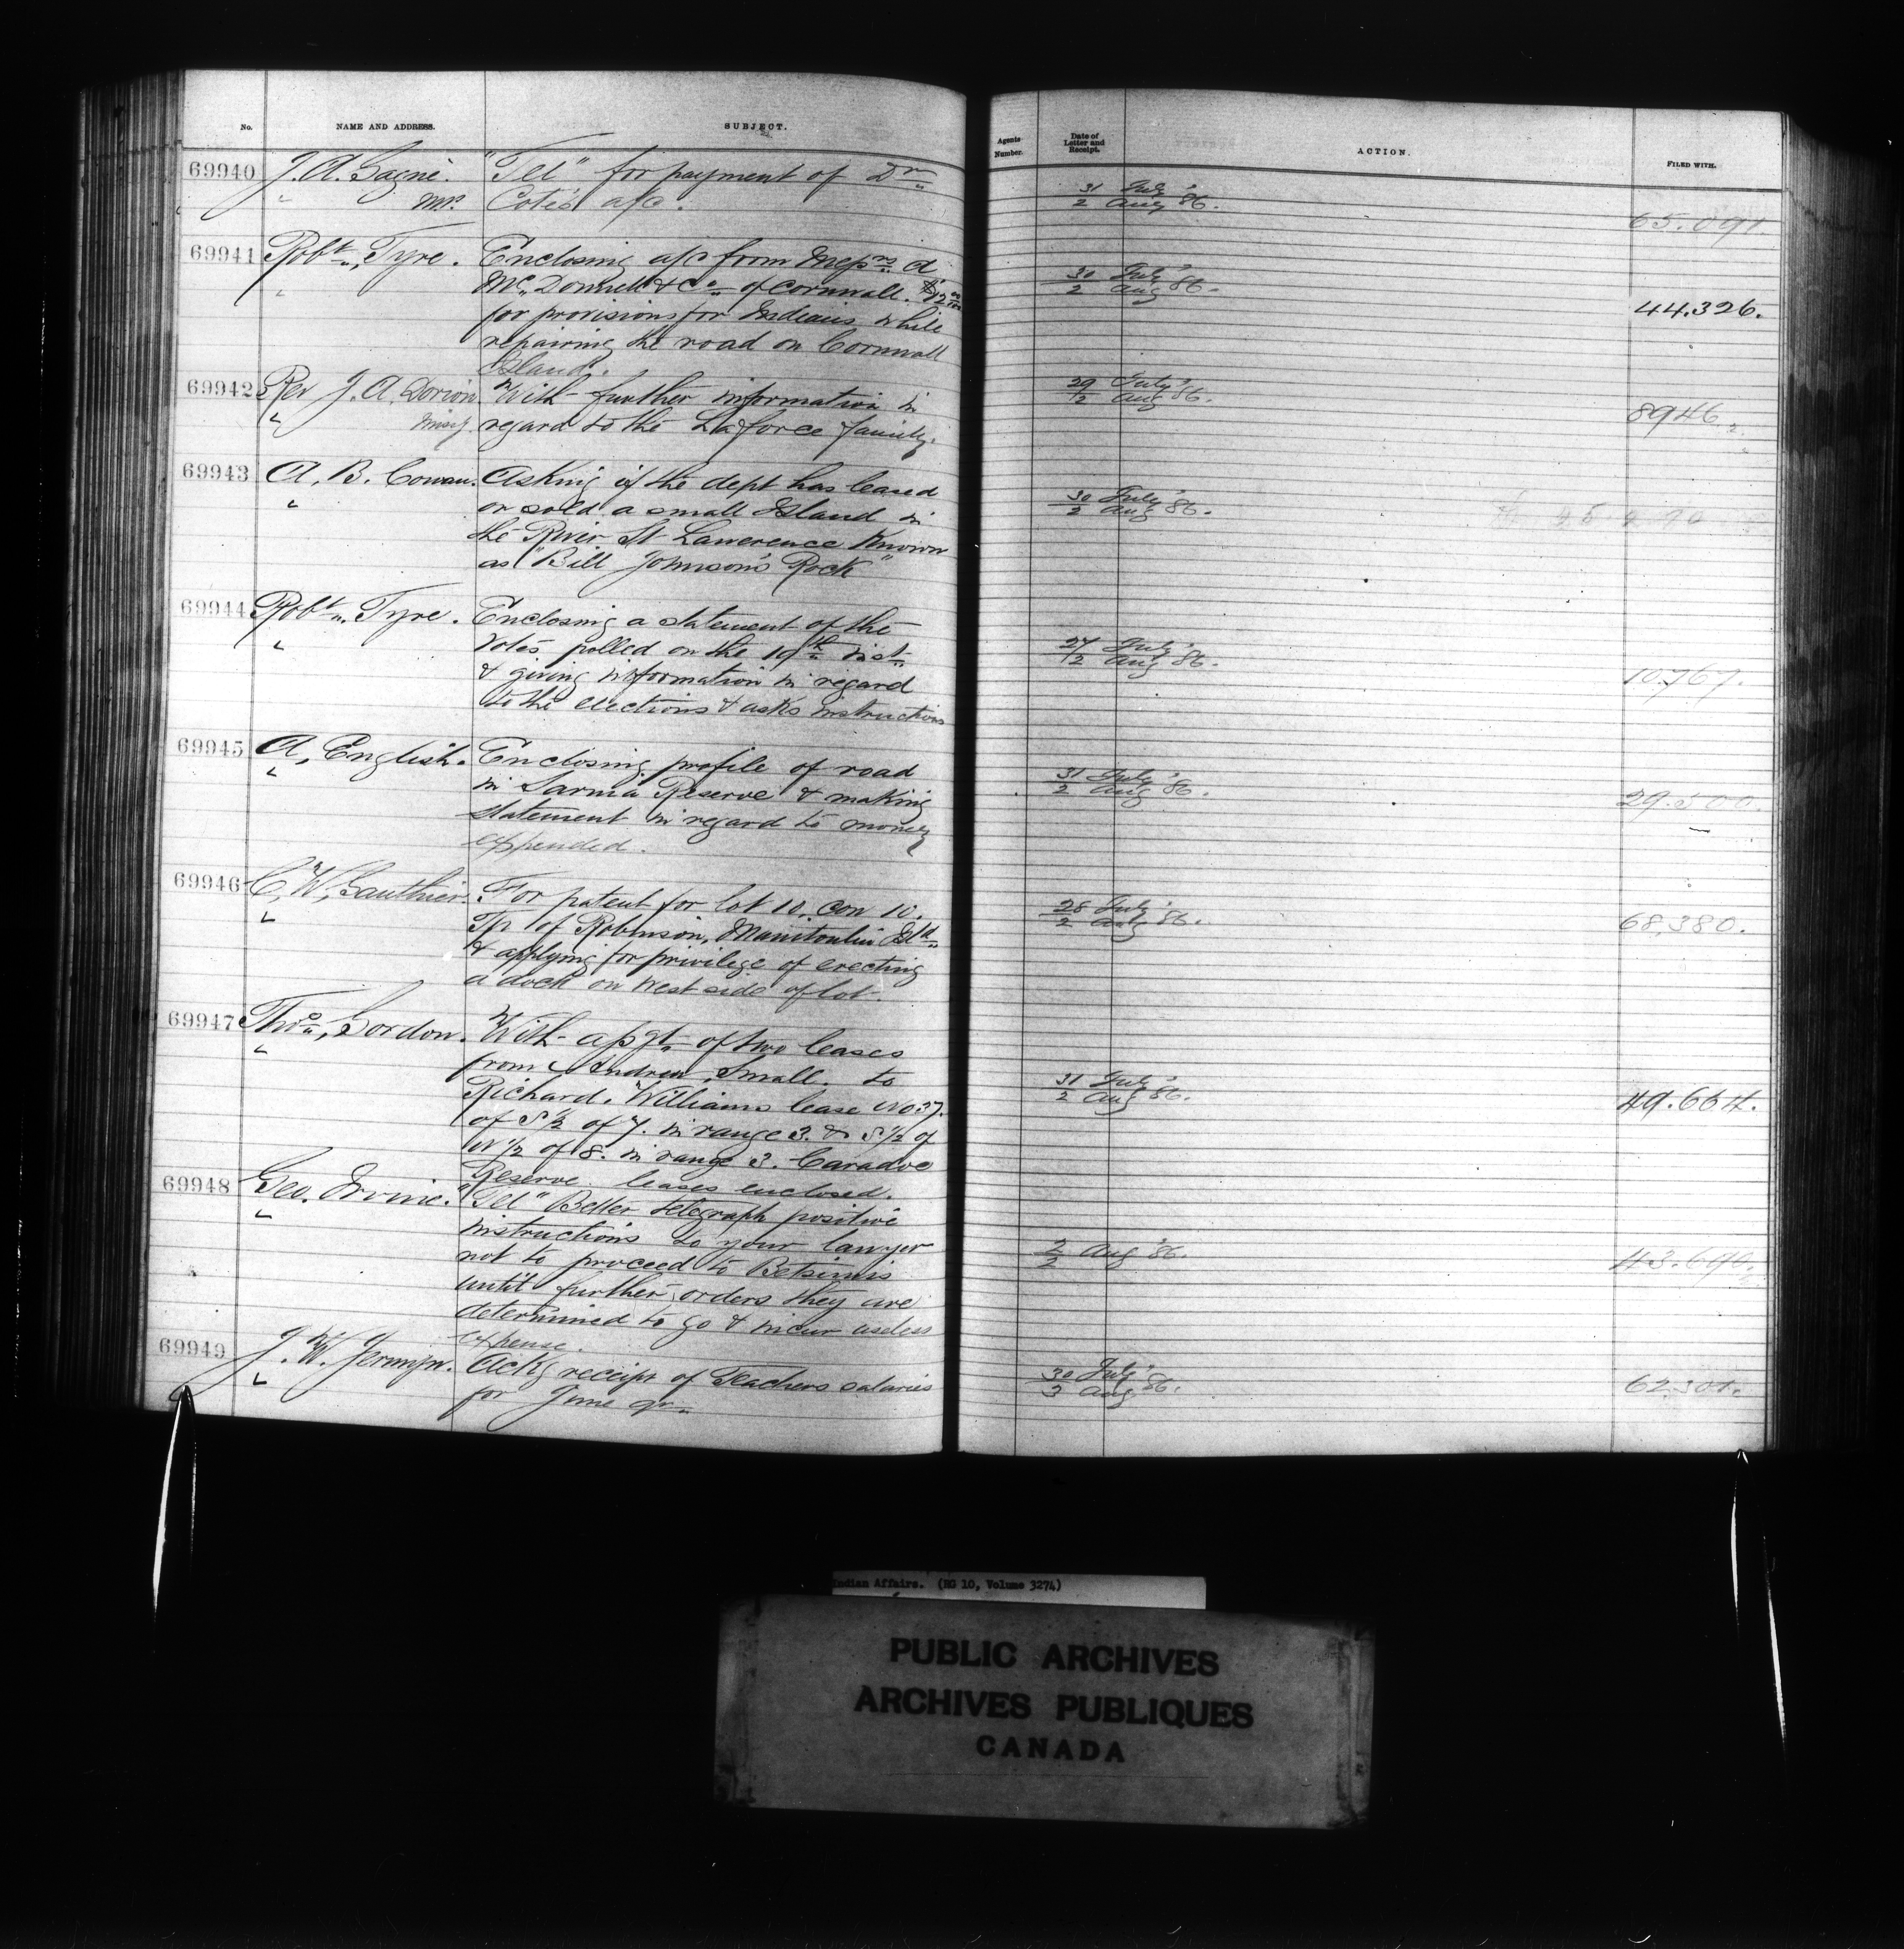 No. NAME AND ADDRESS. SUBJECT.
Agents Number. Date of Letter and Receipt. ACTION. FILED WITH.
69940 J. A. Gagné. "Tel" for payment of Dr
" Coté's a/c.
31 July '
2 Aug 86.
65.091
69941 Robt. Tyre. Enclosing a/c from Messrs A
" McDonnell & Co of Cornwall. $12 00/100
for provisions for Indians while
repairing the road on Cornwall
Island.
30 July '
2 Aug 86.
44.326.
69942 Rev J. A. Dorion With further information in
" Missy. regard to the Laforce family.
29 July '
2 Aug 86.
8946
69943 A. B. Cowan. Asking if the dept has leased
" or sold a small Island in
the River St Lawerence Known
as "Bill Johnson's Rock"
30 July '
2 Aug 86.
69944 Robt. Tyre. Enclosing a statement of the
" votes polled on the 19th inst
& giving information in regard
to the elections & asks instructions
27 July '
2 Aug 86.
10.767.
69945 A. English. Enclosing profile of road
" in Sarnia Reserve & making
statement in regard to money
expended.
31 July '
2 Aug 86.
29.500.
69946 C. W. Gauthier. For patent for lot 10. Con 10.
" Tp of Robinson, Manitoulin Isld
& applying for privilege of erecting
a dock on west side of lot.
28 July '
2 Aug 86.
68,380.
69947 Thos. Gordon. With assgt of two leases
" from Andrew Small. to
Richard. Williams lease No 37.
of S ½ of 7. in range 3. & S ½ of
N ½ of 8. in range 3. Caradoc
Reserve. leases enclosed.
31 July '
2 Aug 86.
49.664.
69948 Geo. Irvine. "Tel" Better telegraph positive
" instructions to your lawyer
not to proceed to Betsimis
until further orders they are
determined to go & incur useless
expense.
2 Aug '86.
2
43.690.
69949 J. W. Jermyn. Ackg receipt of Teachers salaries
" for June qr.
30 July '
3 Aug 86.
62.301.
Indian Affairs. (RG 10, Volume 3274)
PUBLIC ARCHIVES
ARCHIVES PUBLIQUES
CANADA